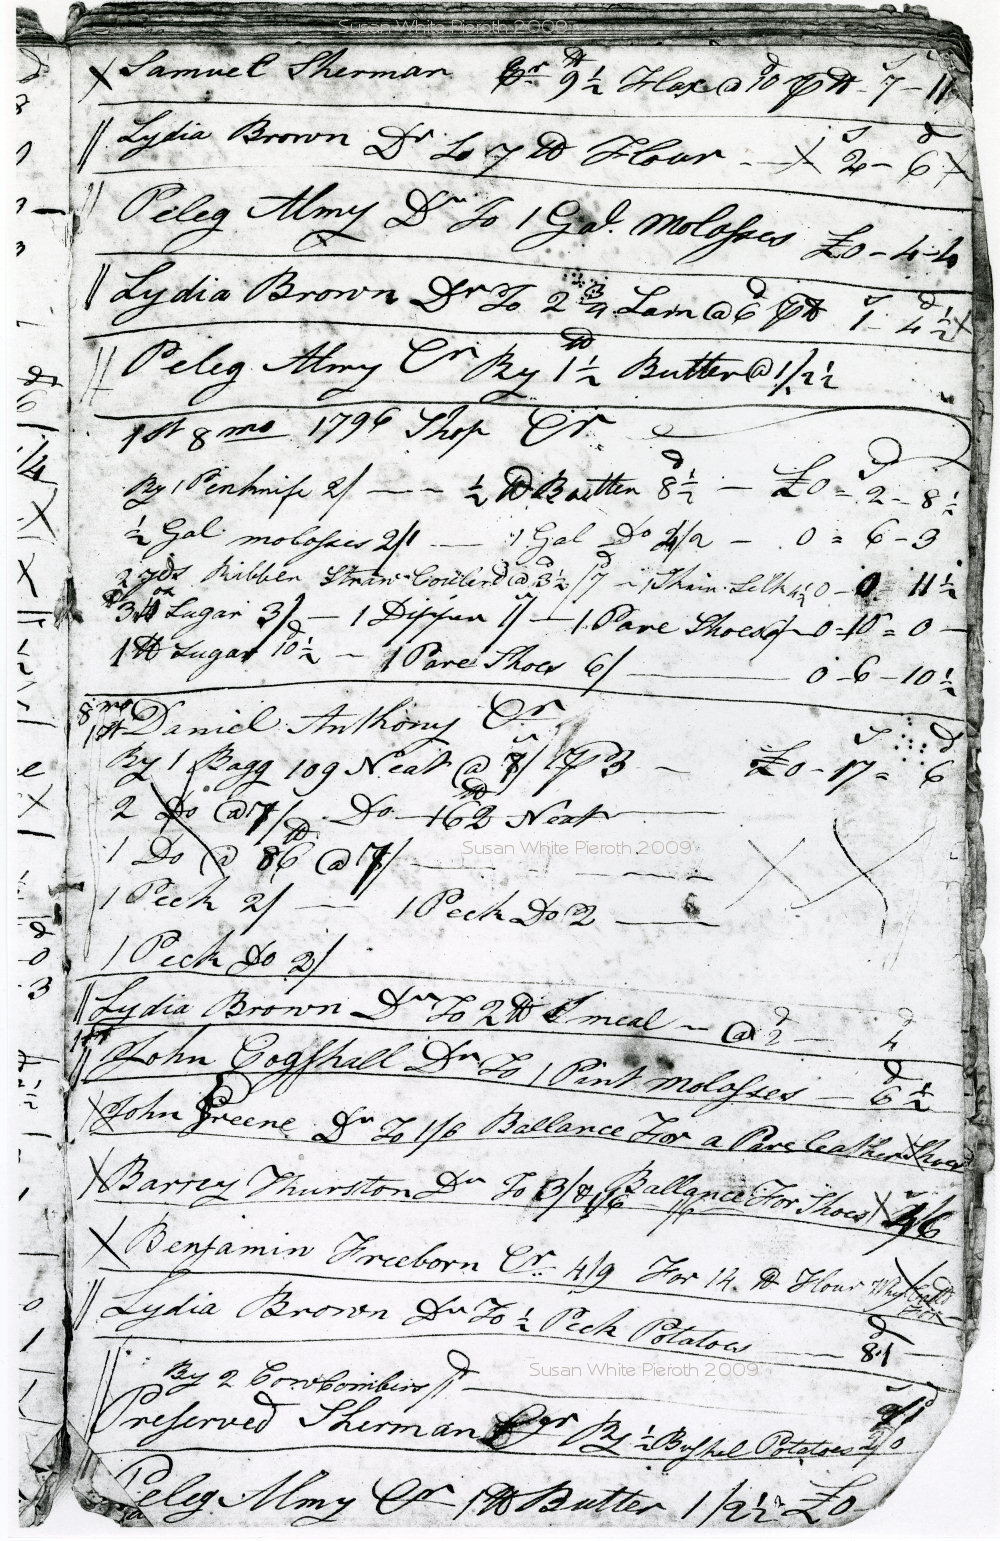 Susan White Pieroth 2009
X Samuel Sherman Cr 9½ ℔ Flax @ 10d ℔ 7 - 11
// Lydia Brown Dr To 7 ℔ Flour X 2 - 6 X
// Peleg Almy Dr To 1 Gal. Molosses £0 - 4 - 4
// Lydia Brown Dr To 2¾ Lam @ 6d ℔ 1 - 4½ X
// Peleg Almy Cr By 1½ ℔ Butter @ 1/2½
1st 8mo 1796 Shop Cr
By 1 Penknife 2/ ½ ℔ Butter 8½d £0 = 2 - 8½
½ Gal molosses 2/1 1 Gal Do 4/2 0 = 6 - 3
2 yds Ribben Straw Coulerd @ 3½d /7d 1 Skain Silk 4½ 0 - 0 11½
3 ℔ Sugar 3/ 1 Dipper 1/ 1 Pare Shoes 0 = 10 = 0
1 ℔ Sugar 10½d 1 Pare Shoes 6/ 0 - 6 - 10½
8mo 1st Daniel Anthony Cr
By 1 Bagg 109 Neat @ 7/ £0 - 17 = 6
2 Do @ 7/ Do 162 ℔ Neat
1 Do @ 86 ℔ @ 7/
Susan White Pieroth 2009
1 Peck 2/ 1 Peck Do 2
1 Peck Do 2/
// Lydia Brown Dr To 2 ℔ meal @ 2d 4d
1st // John Cogshall Dr To 1 Pint Molosses 6½d
X John Greene Dr To 1/6 Ballance For a Pare leather Shoes
X Barney Thurston Dr To Ballance For Shoes X 4/6
X Benjamin Freeborn Cr 4/9 For 14 ℔ Flour
// Lydia Brown Dr To ½ Peck Potatoes 8d
Susan White Pieroth 2009
// By 2 Cowcombers 1d
Preserved Sherman Cr By ½ Bushel Potatoes 2/0
Peleg Almy Cr 1 ℔ Butter 1/2½ £0